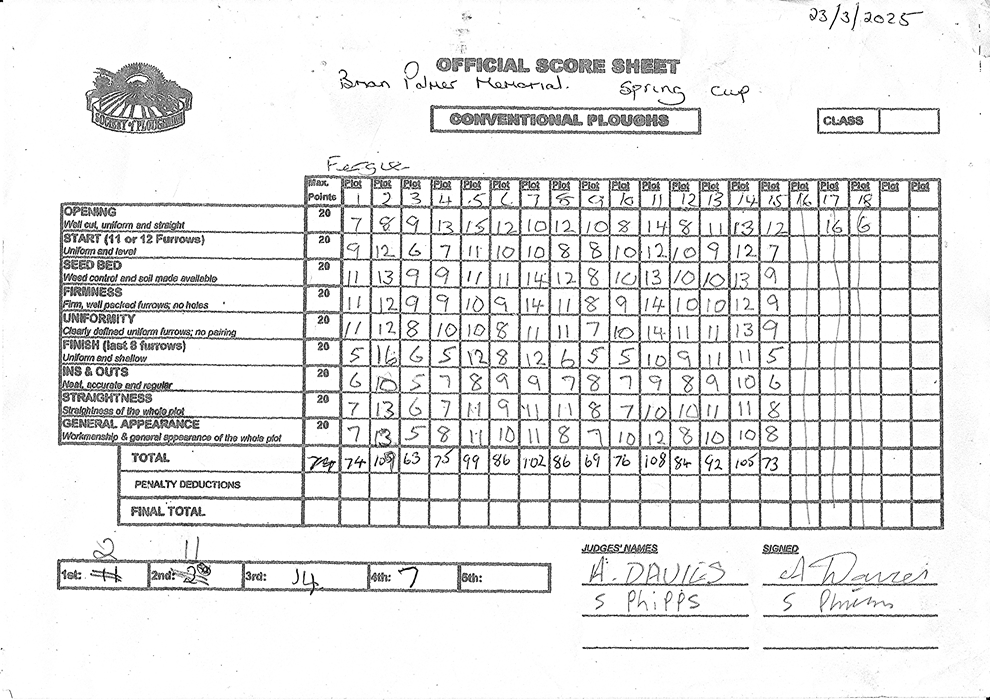 23/3/2025
OFFICIAL SCORE SHEET
Brian Palmer Memorial. Spring Cup
SOCIETY of PLOUGHMEN
CONVENTIONAL PLOUGHS
CLASS
Max. Points Plot 1 Plot 2 Plot 3 Plot 4 Plot 5 Plot 6 Plot 7 Plot 8 Plot 9 Plot 10 Plot 11 Plot 12 Plot 13 Plot 14 Plot 15 Plot 16 Plot 17 Plot 18 Plot Plot
OPENING 20 7 8 9 13 15 12 10 12 10 8 14 8 11 13 12 16 6
Well cut, uniform and straight
START (11 or 12 Furrows) 20 9 12 6 7 11 10 10 8 8 10 12 10 9 12 7
Uniform and level
SEED BED 20 11 13 9 9 11 11 14 12 8 10 13 10 10 13 9
Weed control and soil made available
FIRMNESS 20 11 12 9 9 10 9 14 11 8 9 14 10 10 12 9
Firm, well packed furrows; no holes
UNIFORMITY 20 11 12 8 10 10 8 11 11 7 10 14 11 11 13 9
Clearly defined uniform furrows; no pairing
FINISH (last 8 furrows) 20 5 16 6 5 12 8 12 6 5 5 10 9 11 11 5
Uniform and shallow
INS & OUTS 20 6 10 5 7 8 9 9 7 8 7 9 8 9 10 6
Neat, accurate and regular
STRAIGHTNESS 20 7 13 6 7 11 9 11 11 8 7 10 10 11 11 8
Straightness of the whole plot
GENERAL APPEARANCE 20 7 13 5 8 11 10 11 8 7 10 12 8 10 10 8
Workmanship & general appearance of the whole plot
TOTAL 74 109 63 75 99 86 102 86 69 76 108 84 92 105 73
PENALTY DEDUCTIONS
FINAL TOTAL
1st: 2 2nd: 11 3rd: 14 4th: 7 5th:
JUDGES' NAMES SIGNED
A. DAVIES A Davies
S PHIPPS S Phipps